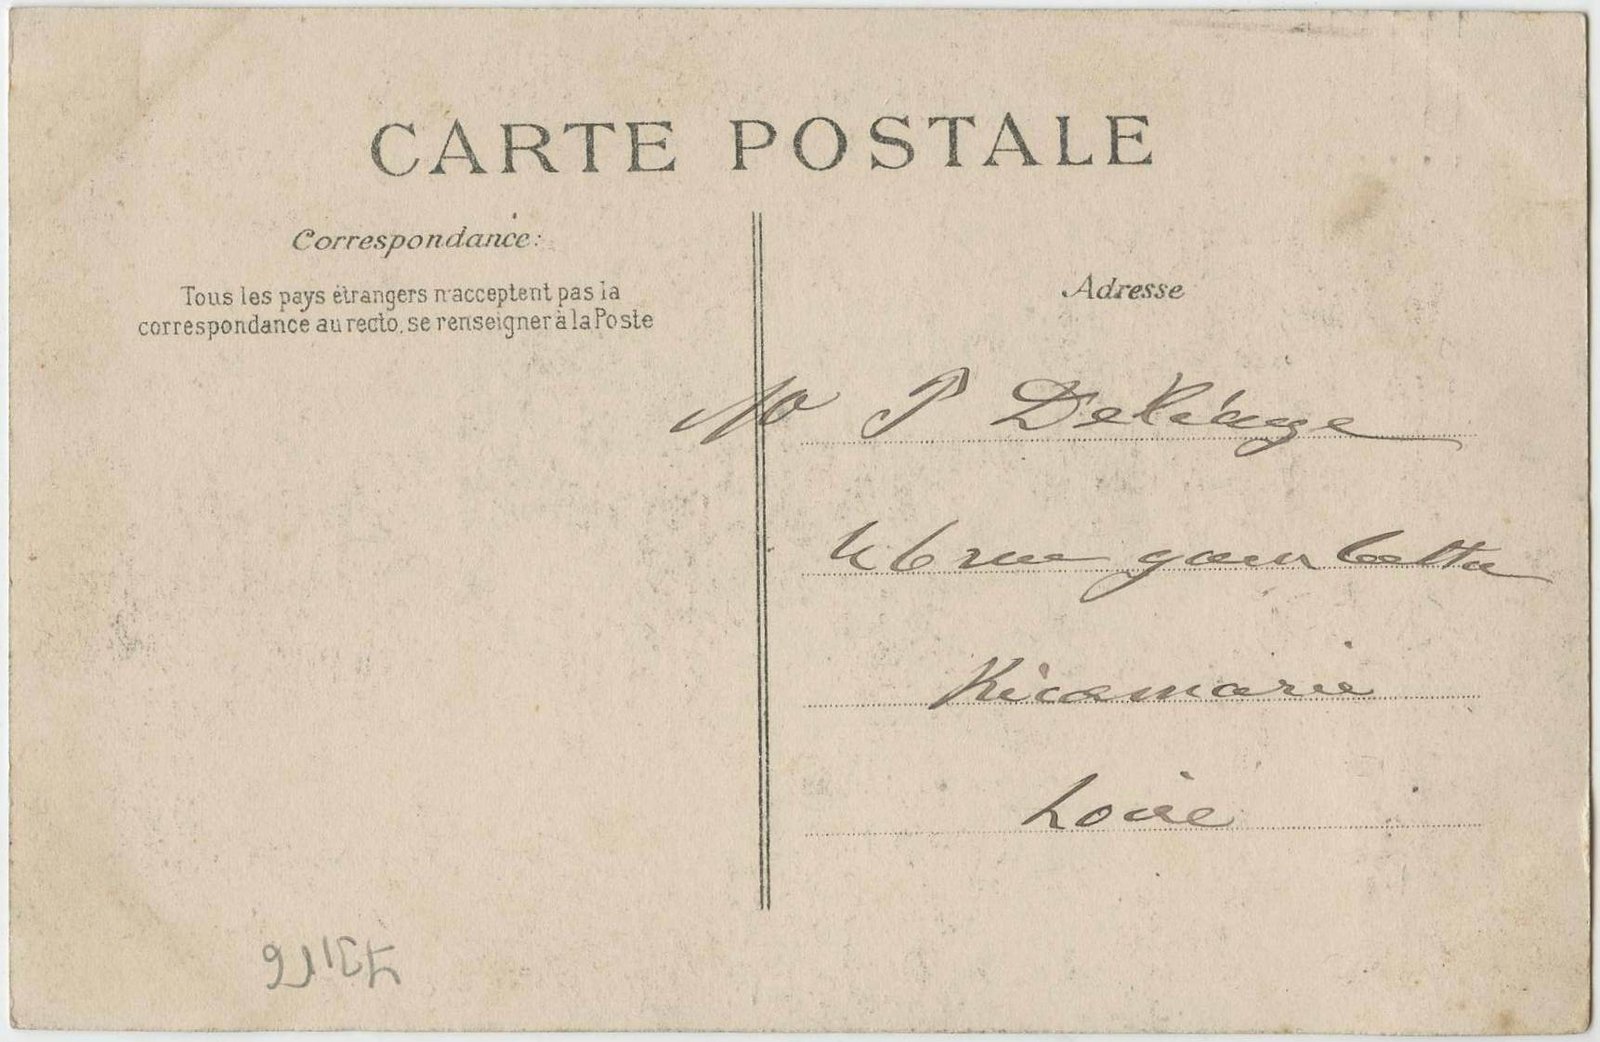 CARTE POSTALE
Correspondance:
Tous les pays étrangers n'acceptent pas la
correspondance au recto, se renseigner à la Poste
Adresse
P Deléage
46 rue gambetta
Ricamarie
Loire